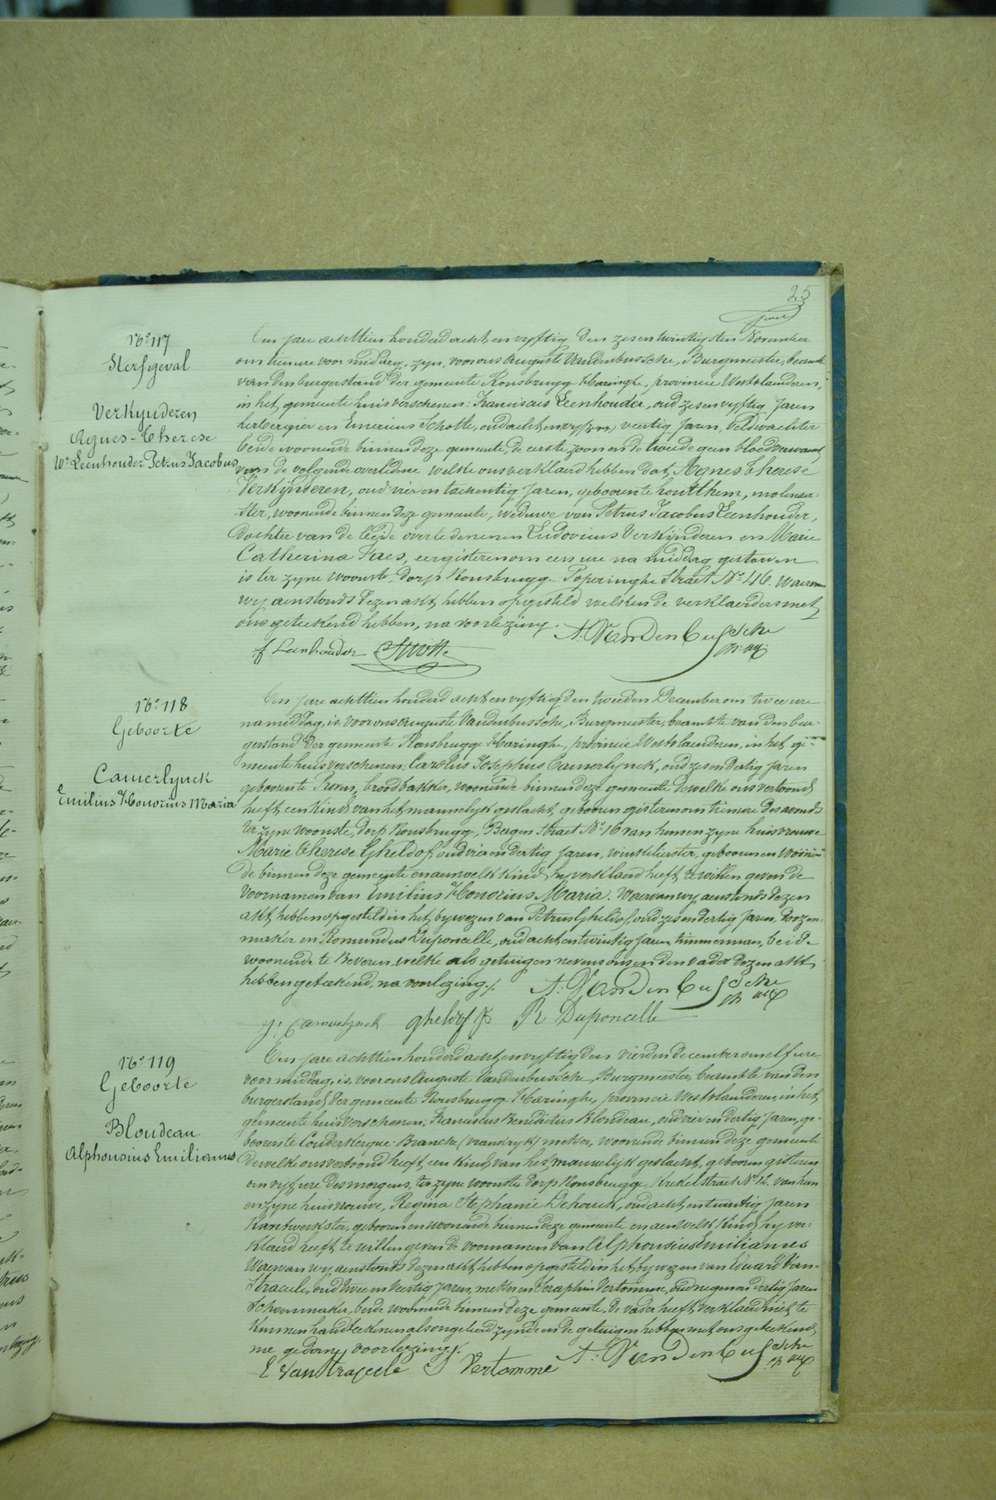 25
N° 117
Sterfgeval
Verkynderen
Agnes-Therese
We Leenhouder Petrus Jacobus
Ten jare achttien honderd acht en vyftig den zesentwintigsten November
om neuren voor middag, zyn, voor ons Auguste Vandenbussche, Burgmeester, beamb
van den burgerstand der gemeente Rousbrugge Haringhe, provincie Westvlaenderen,
in het gemeente huis verschenen: Franciscus Leenhouder, oud zesenvyftig jaren
herbergier en Scholle, oud achten veertig jaren, veldwachter
beide woonende binnen deze gemeente, de eerste zoon en de tweede geen bloedverwant
van de volgende overledene welke ons verklaerd hebben dat, Agnes Therese
Verkynderen, oud vier en tachentig jaren, geboren te Houtthem,
woonende binnen deze gemeente, weduwe van Petrus Jacobus Leenhouder,
dochter van de beide overledenen Ludovicus Verkynderen en Marie
Catherina Faes, eergisteren om een ure na middag gestorven
is ter zyne woonste, dorp Rousbrugge Poperinghe Straet N° 46. Waervan
wy aenstonds dezen akt hebben opgesteld welken de verklaerders met
ons geteekend hebben, na voorlezing.
A. Vandenbussche
f Leenhouder
N° 118
Geboorte
Camerlynck
Emilius Honorius Maria
Ten jare achttien honderd acht en vyftig den tweeden December om twee ure
namiddag, is voor ons Auguste Vandenbussche, Burgmeester, beambte van den bur-
gerstand der gemeente Rousbrugge Haringhe, provincie Westvlaenderen, in het ge-
meente huis verschenen, Carolus Josephus Camerlynck, oud zesendertig jaren
geboren te broodbakker, woonende binnen deze gemeente dewelke ons vertoond
heeft een kind van het mannelyk geslacht, geboren gisteren om tien ure des avonds
ter zyne woonste, dorp Rousbrugge, Bergen Straet N° 16 van hem en zyne huisvrouwe
Marie Therese Gheldof, oud vierendertig jaren, winkelierster, geboren en woonen-
de binnen deze gemeente en aen welk kind hy verklaerd heeft te willen geven de
voornamen van Emilius Honorius Maria. Waervan wy aenstonds dezen
akt hebben opgesteld in het bywezen van Petrus Gheldof, oud zesendertig jaren,
maker en Romundus Duponcelle, oud achtentwintig jaren, timmerman, beide
woonende te Beveren welke als getuigen nevens ons en den vader dezen akt
hebben geteekend, na voorlezing.
A. Vandenbussche
Camerlynck gheldof P R Duponcelle
N° 119
Geboorte
Blondeau
Alphonsius Emilianus
Ten jare achttien honderd acht en vyftig den vierden december om elf ure
voor middag, is voor ons Auguste Vandenbussche, Burgmeester, beambte van den
burgerstand der gemeente Rousbrugge Haringhe, provincie Westvlaenderen, in het
gemeente huis verschenen, Franciscus Benedictus Blondeau, oud vierendertig jaren, ge-
boren te Coudekerque Branche (Vrankryk) metser, woonende binnen deze gemeente
dewelke ons vertoond heeft, een kind van het mannelyk geslacht, geboren gisteren
om vyf ure des morgens, ter zyne woonste dorp Rousbrugge Kerkel straet N° 12, van hem
en zyne huisvrouwe, Regina Stephanie Dehouck, oud achtentwintig jaren
kantwerkster, geboren en woonende binnen deze gemeente en aen welk kind hy ver-
klaerd heeft te willen geven de voornamen van Alphonsius Emilianus
Waervan wy aenstonds dezen akt hebben opgesteld in het bywezen van Eduard Van-
straceele, oud twee en veertig jaren, metser en Seraphin Vertomme, oud negenendertig jaren
schoenmaker, beide woonende binnen deze gemeente. De vader heeft verklaerd niet te
kunnen handteekenen als ongeleerd zynde en de getuigen hebben met ons geteekend
na gedane voorlezing.
E Vanstraceele S Vertomme A. Vandenbussche